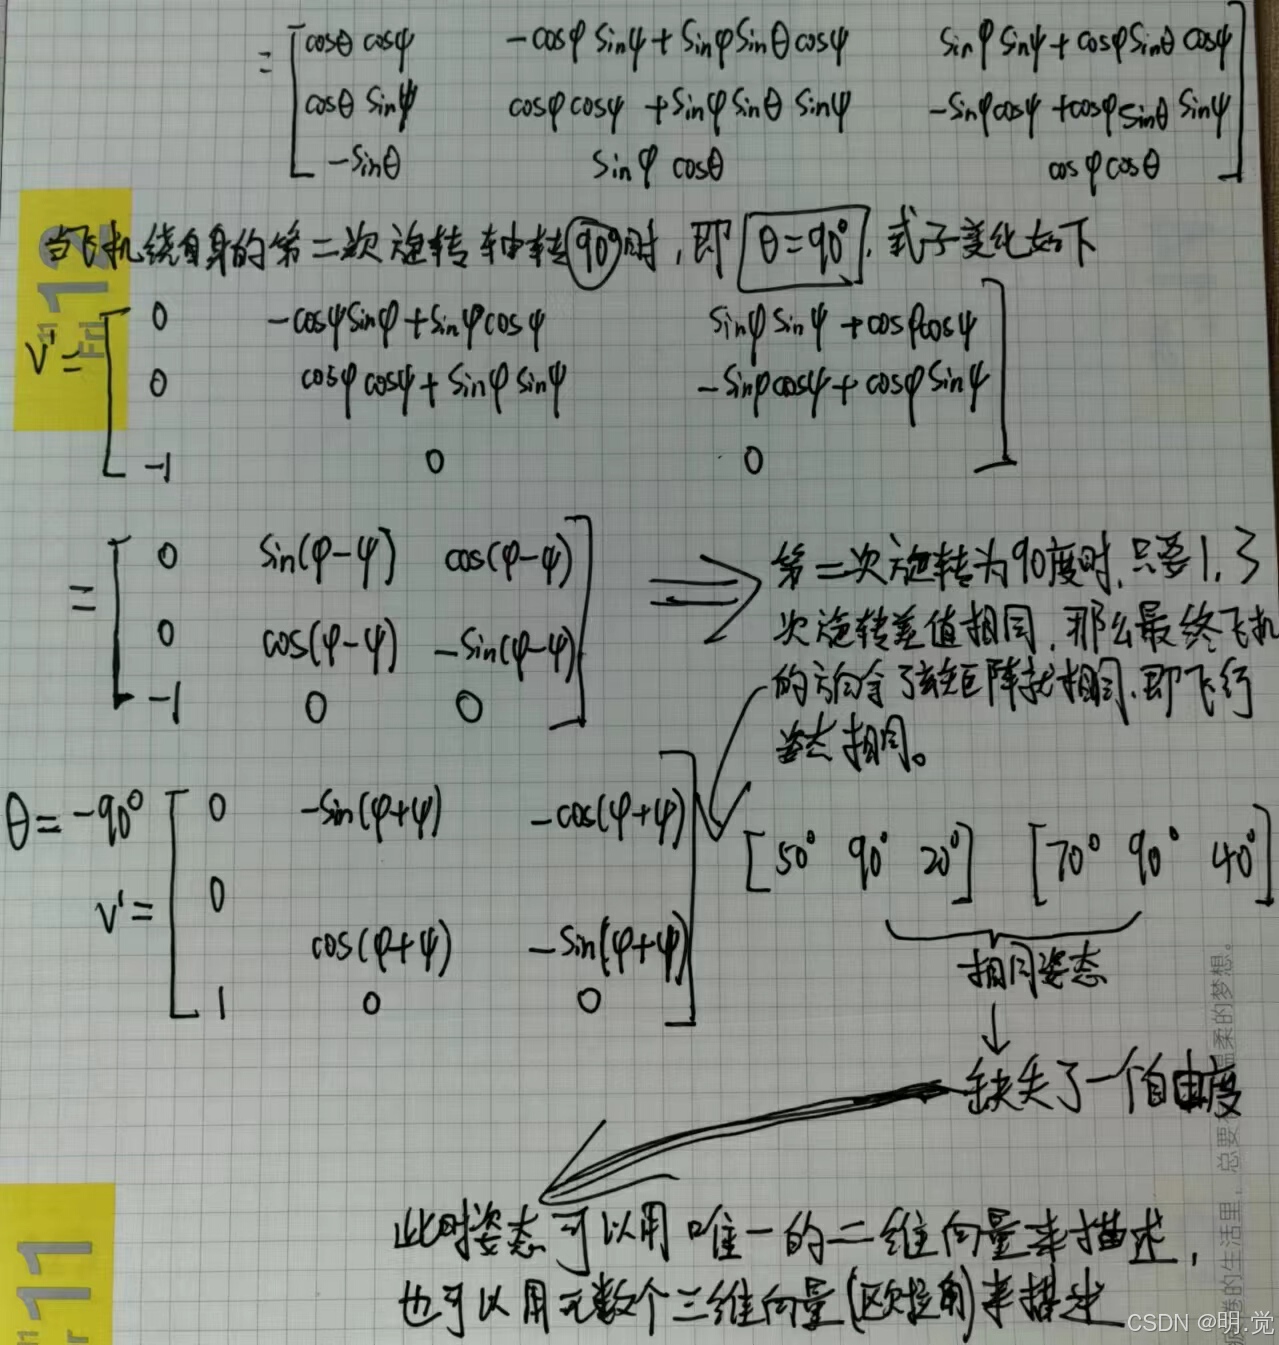 = [cosθ cosψ   -cosφ sinψ + sinφ sinθ cosψ   sinφ sinψ + cosφ sinθ cosψ
cosθ sinψ   cosφ cosψ + sinφ sinθ sinψ   -sinφ cosψ + cosφ sinθ sinψ
-sinθ   sinφ cosθ   cosφ cosθ]
当飞机绕自身的第二次旋转轴转90°时,即 θ=90°,式子变化如下
V' = [0   -cosφ sinψ + sinφ cosψ   sinφ sinψ + cosφ cosψ
0   cosφ cosψ + sinφ sinψ   -sinφ cosψ + cosφ sinψ
-1   0   0]
= [0   sin(φ-ψ)   cos(φ-ψ)
0   cos(φ-ψ)   -sin(φ-ψ)
-1   0   0]
⇒ 第二次旋转为90度时,只要1,3
次旋转差值相同,那么最终飞机
的方向余弦矩阵就相同,即飞行
姿态相同。
θ=-90°
V' = [0   -sin(φ+ψ)   -cos(φ+ψ)
0   cos(φ+ψ)   -sin(φ+ψ)
1   0   0]
[50° 90° 20°]   [70° 90° 40°]
相同姿态
↓
缺失了一个自由度
此时姿态可以用唯一的二维向量来描述,
也可以用无数个三维向量(欧拉角)来描述
12
Fri
11
总要
温柔的梦想。
的生活里,
CSDN @明.觉